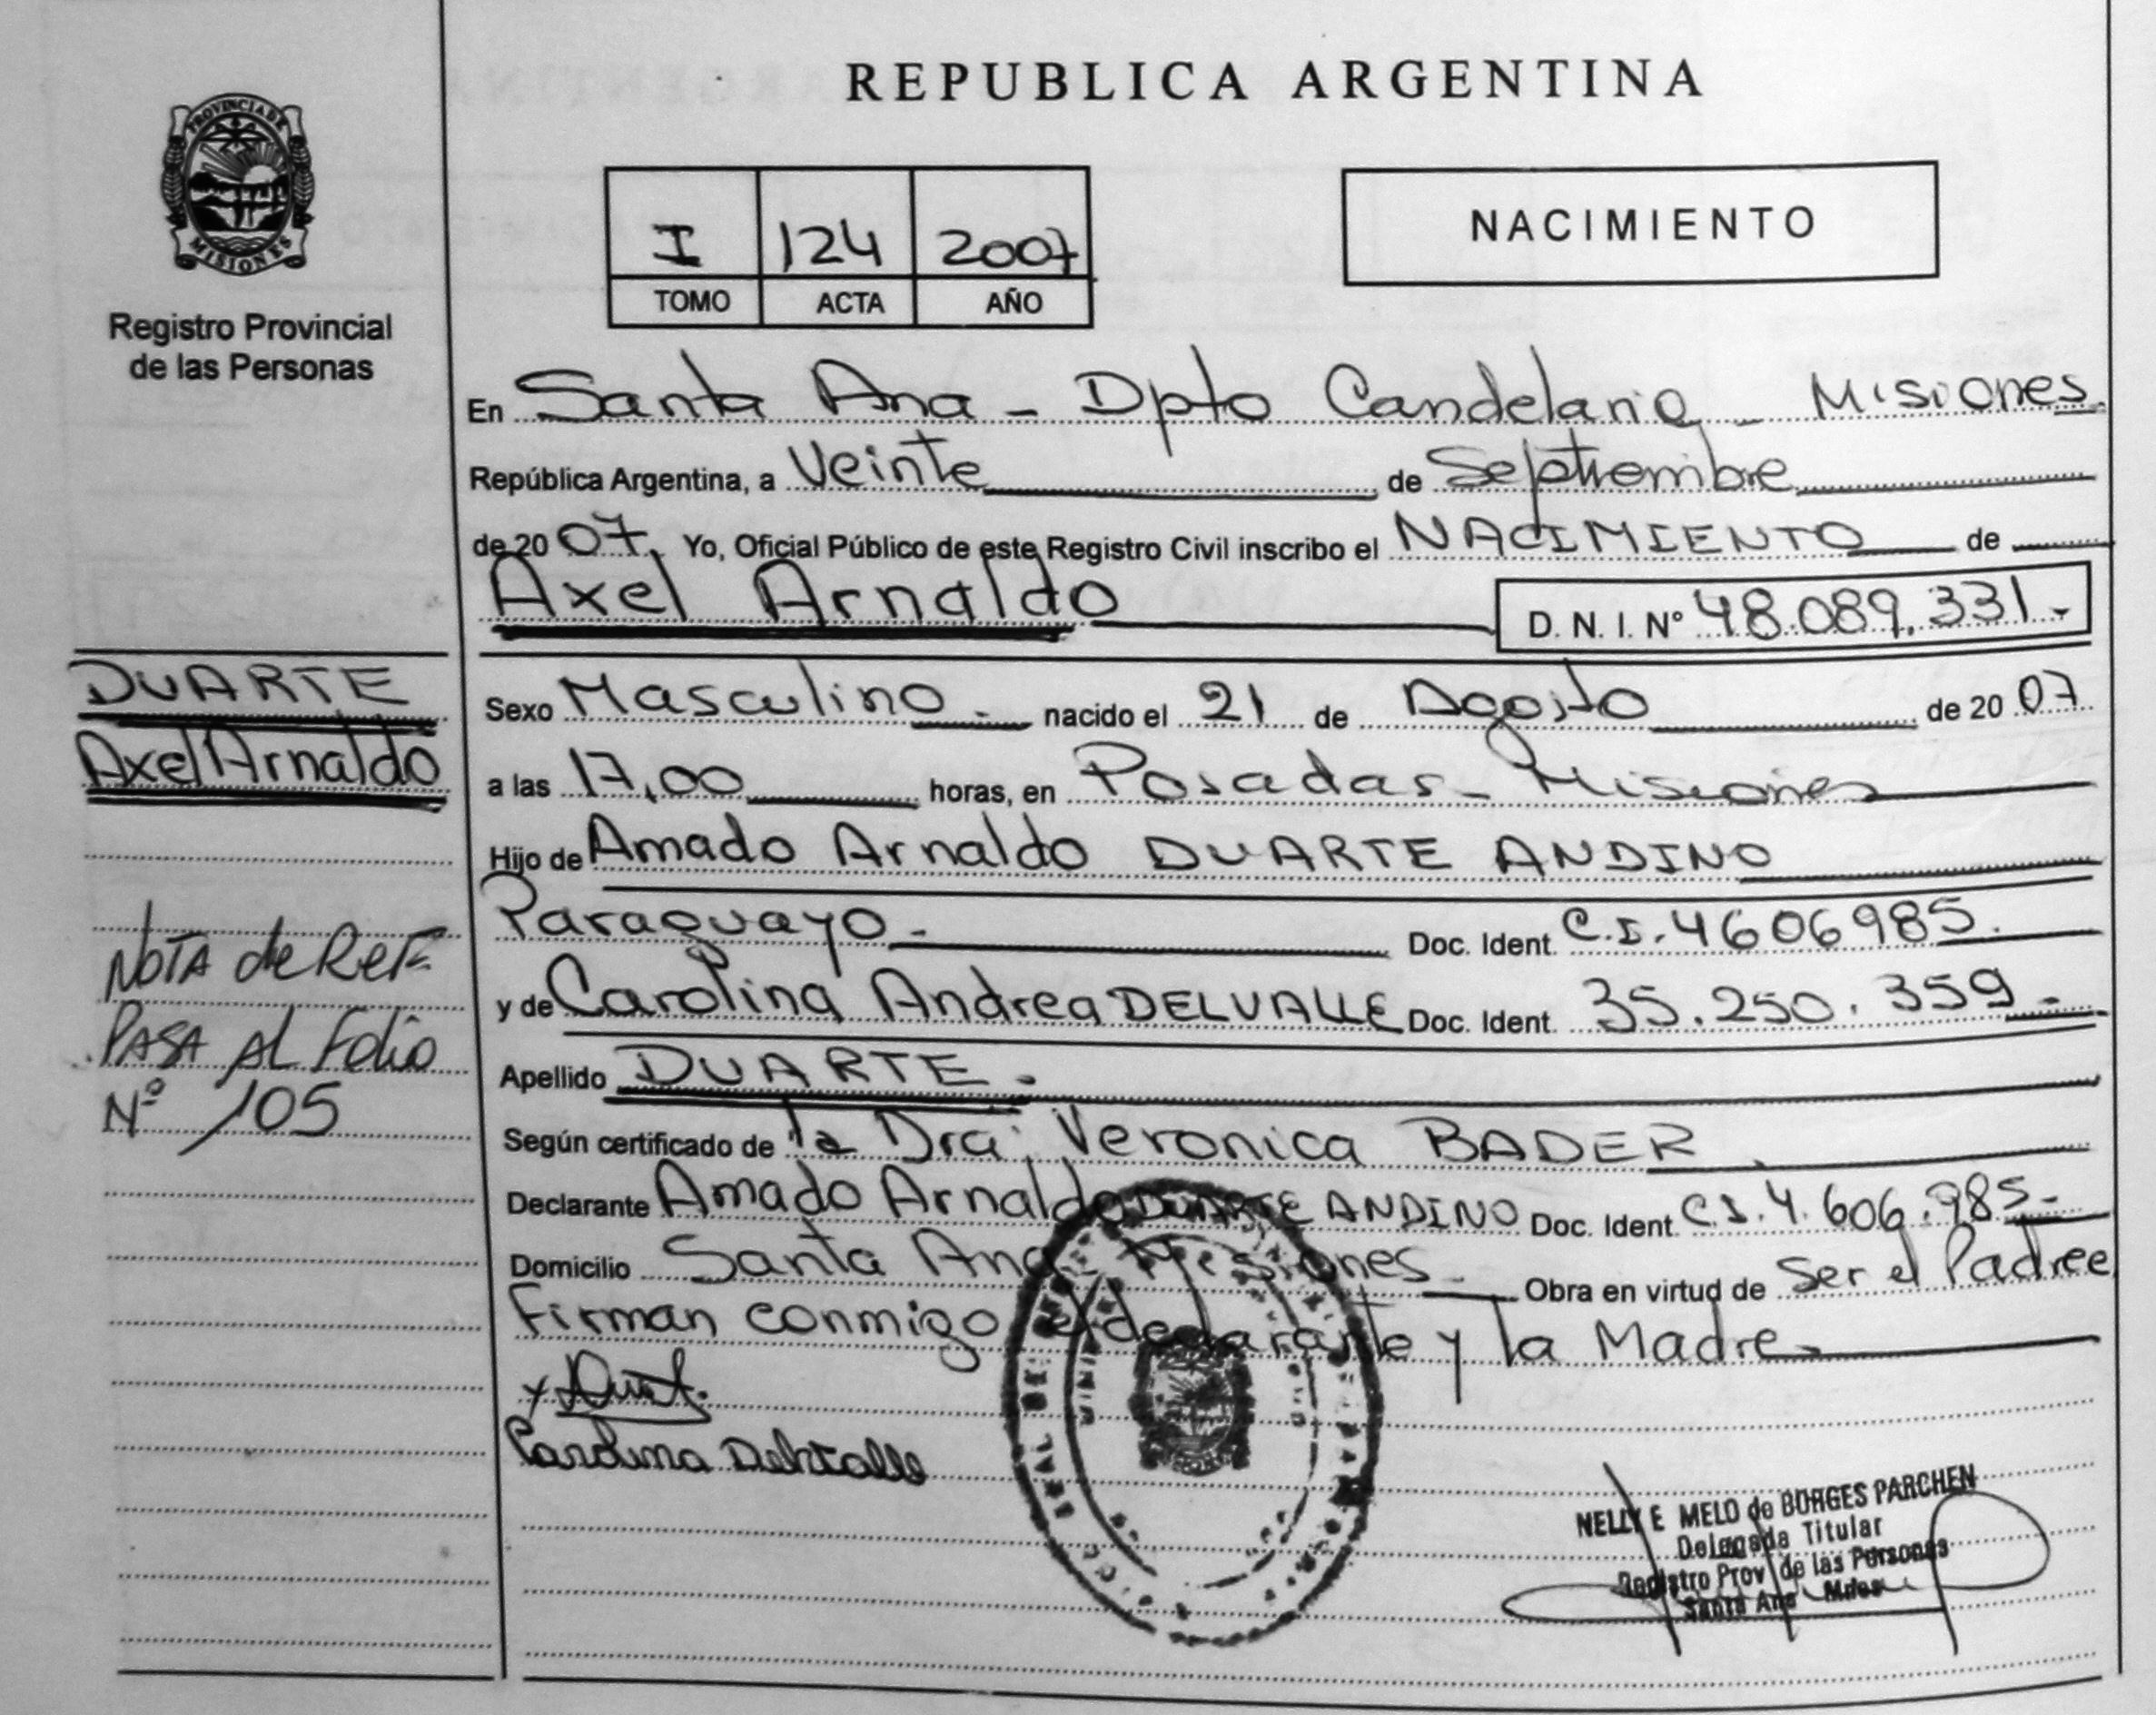 PROVINCIA DE
MISIONES
Registro Provincial
de las Personas
DUARTE
Axel Arnaldo
NOTA de Ref=
PASA AL Folio
Nº 105
REPUBLICA ARGENTINA
I 124 2007
TOMO ACTA AÑO
NACIMIENTO
En Santa Ana - Dpto Candelaria - Misiones.
República Argentina, a Veinte de Septiembre
de 2007. Yo, Oficial Público de este Registro Civil inscribo el NACIMIENTO de
Axel Arnaldo D. N. I. Nº 48.089.331.-
Sexo Masculino.- nacido el 21 de Agosto de 2007
a las 17,00 horas, en Posadas - Misiones
Hijo de Amado Arnaldo DUARTE ANDINO
Paraguayo.- Doc. Ident. C.I. 4606985.
y de Carolina Andrea DELVALLE Doc. Ident. 35.250.359.-
Apellido DUARTE.-
Según certificado de la Dra. Veronica BADER.
Declarante Amado Arnaldo DUARTE ANDINO Doc. Ident. C.I. 4.606.985.-
Domicilio Santa Ana - Misiones. Obra en virtud de Ser el Padree
Firman conmigo el declarante y la Madre.
Carolina Delvalle
NELLY E MELO de BORGES PARCHEN
Delegada Titular
Registro Prov de las Personas
Santa Ana Mnes